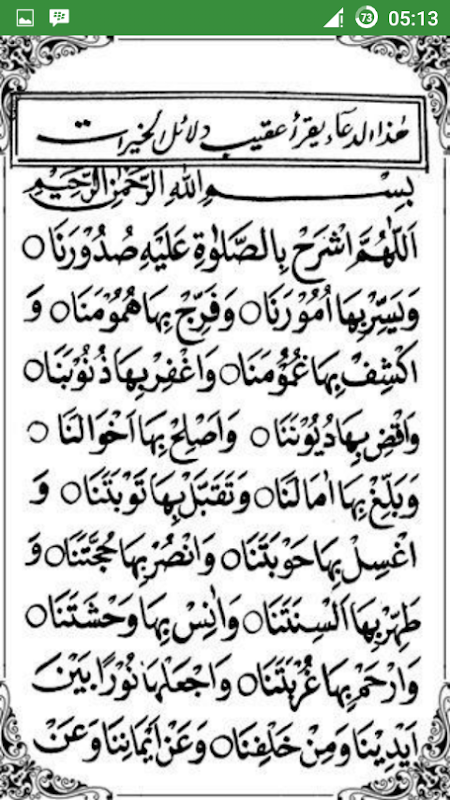 73 05:13
هٰذا الدعاء يقرأ عقيب دلائل الخيرات
بِسْمِ اللهِ الرَّحْمٰنِ الرَّحِيْمِ
اَللّٰهُمَّ اشْرَحْ بِالصَّلٰوةِ عَلَيْهِ صُدُوْرَنَا ○
وَيَسِّرْ بِهَا اُمُوْرَنَا ○ وَفَرِّجْ بِهَا هُمُوْمَنَا ○ وَ
اكْشِفْ بِهَا غُمُوْمَنَا ○ وَاغْفِرْ بِهَا ذُنُوْبَنَا ○
وَاقْضِ بِهَا دُيُوْنَنَا ○ وَاَصْلِحْ بِهَا اَحْوَالَنَا ○
وَبَلِّغْ بِهَا اٰمَالَنَا ○ وَتَقَبَّلْ بِهَا تَوْبَتَنَا ○ وَ
اغْسِلْ بِهَا حَوْبَتَنَا ○ وَانْصُرْ بِهَا حُجَّتَنَا ○ وَ
طَهِّرْ بِهَا اَلْسِنَتَنَا ○ وَاٰنِسْ بِهَا وَحْشَتَنَا ○
وَارْحَمْ بِهَا غُرْبَتَنَا ○ وَاجْعَلْهَا نُوْرًا بَيْنَ
اَيْدِيْنَا وَمِنْ خَلْفِنَا ○ وَعَنْ اَيْمَانِنَا وَعَنْ